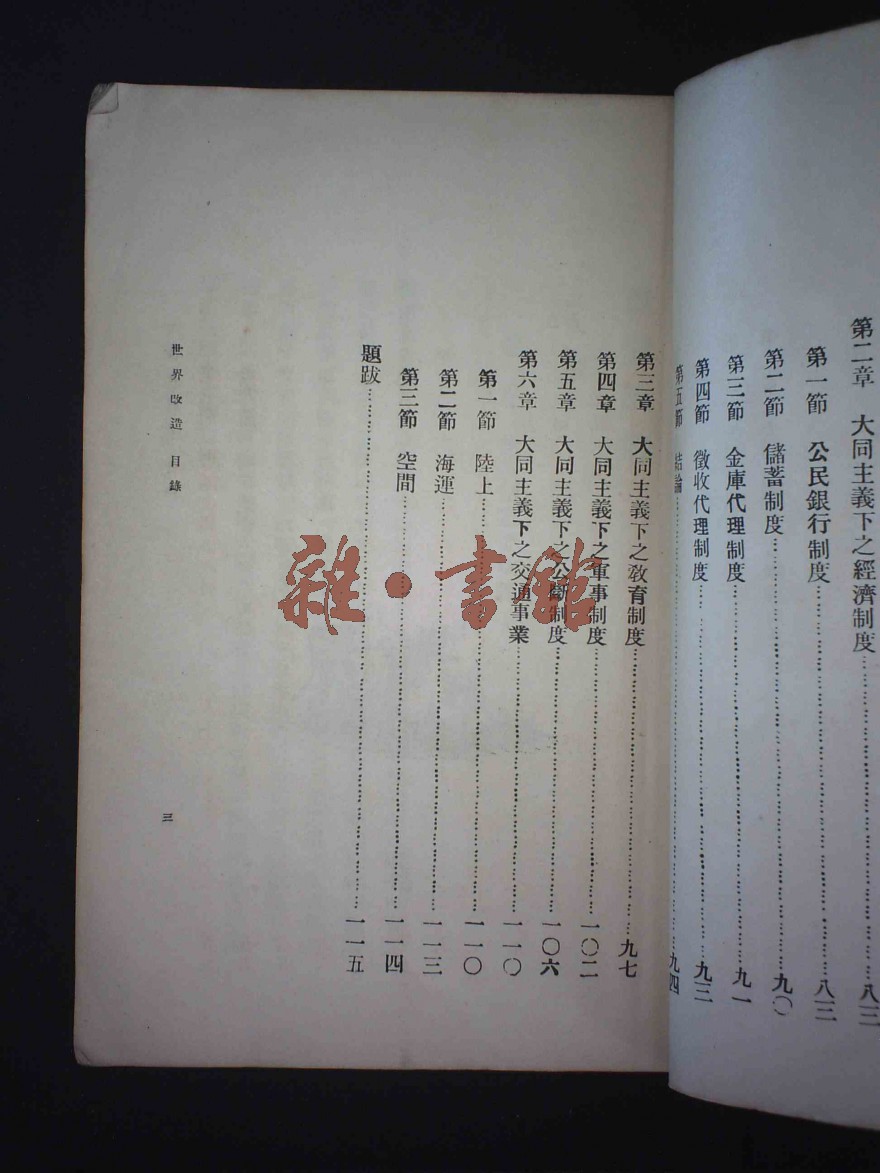 第二章　大同主義下之經濟制度……八三
第一節　公民銀行制度……八三
第二節　儲蓄制度……九〇
第三節　金庫代理制度……九一
第四節　徵收代理制度……九三
第五節　結論……九四
第三章　大同主義下之教育制度……九七
第四章　大同主義下之軍事制度……一〇二
第五章　大同主義下之公斷制度……一〇六
第六章　大同主義下之交通事業……一一〇
第一節　陸上……一一〇
第二節　海運……一一三
第三節　空間……一一四
題跋……一一五
世界改造　目錄
三
雜·書館